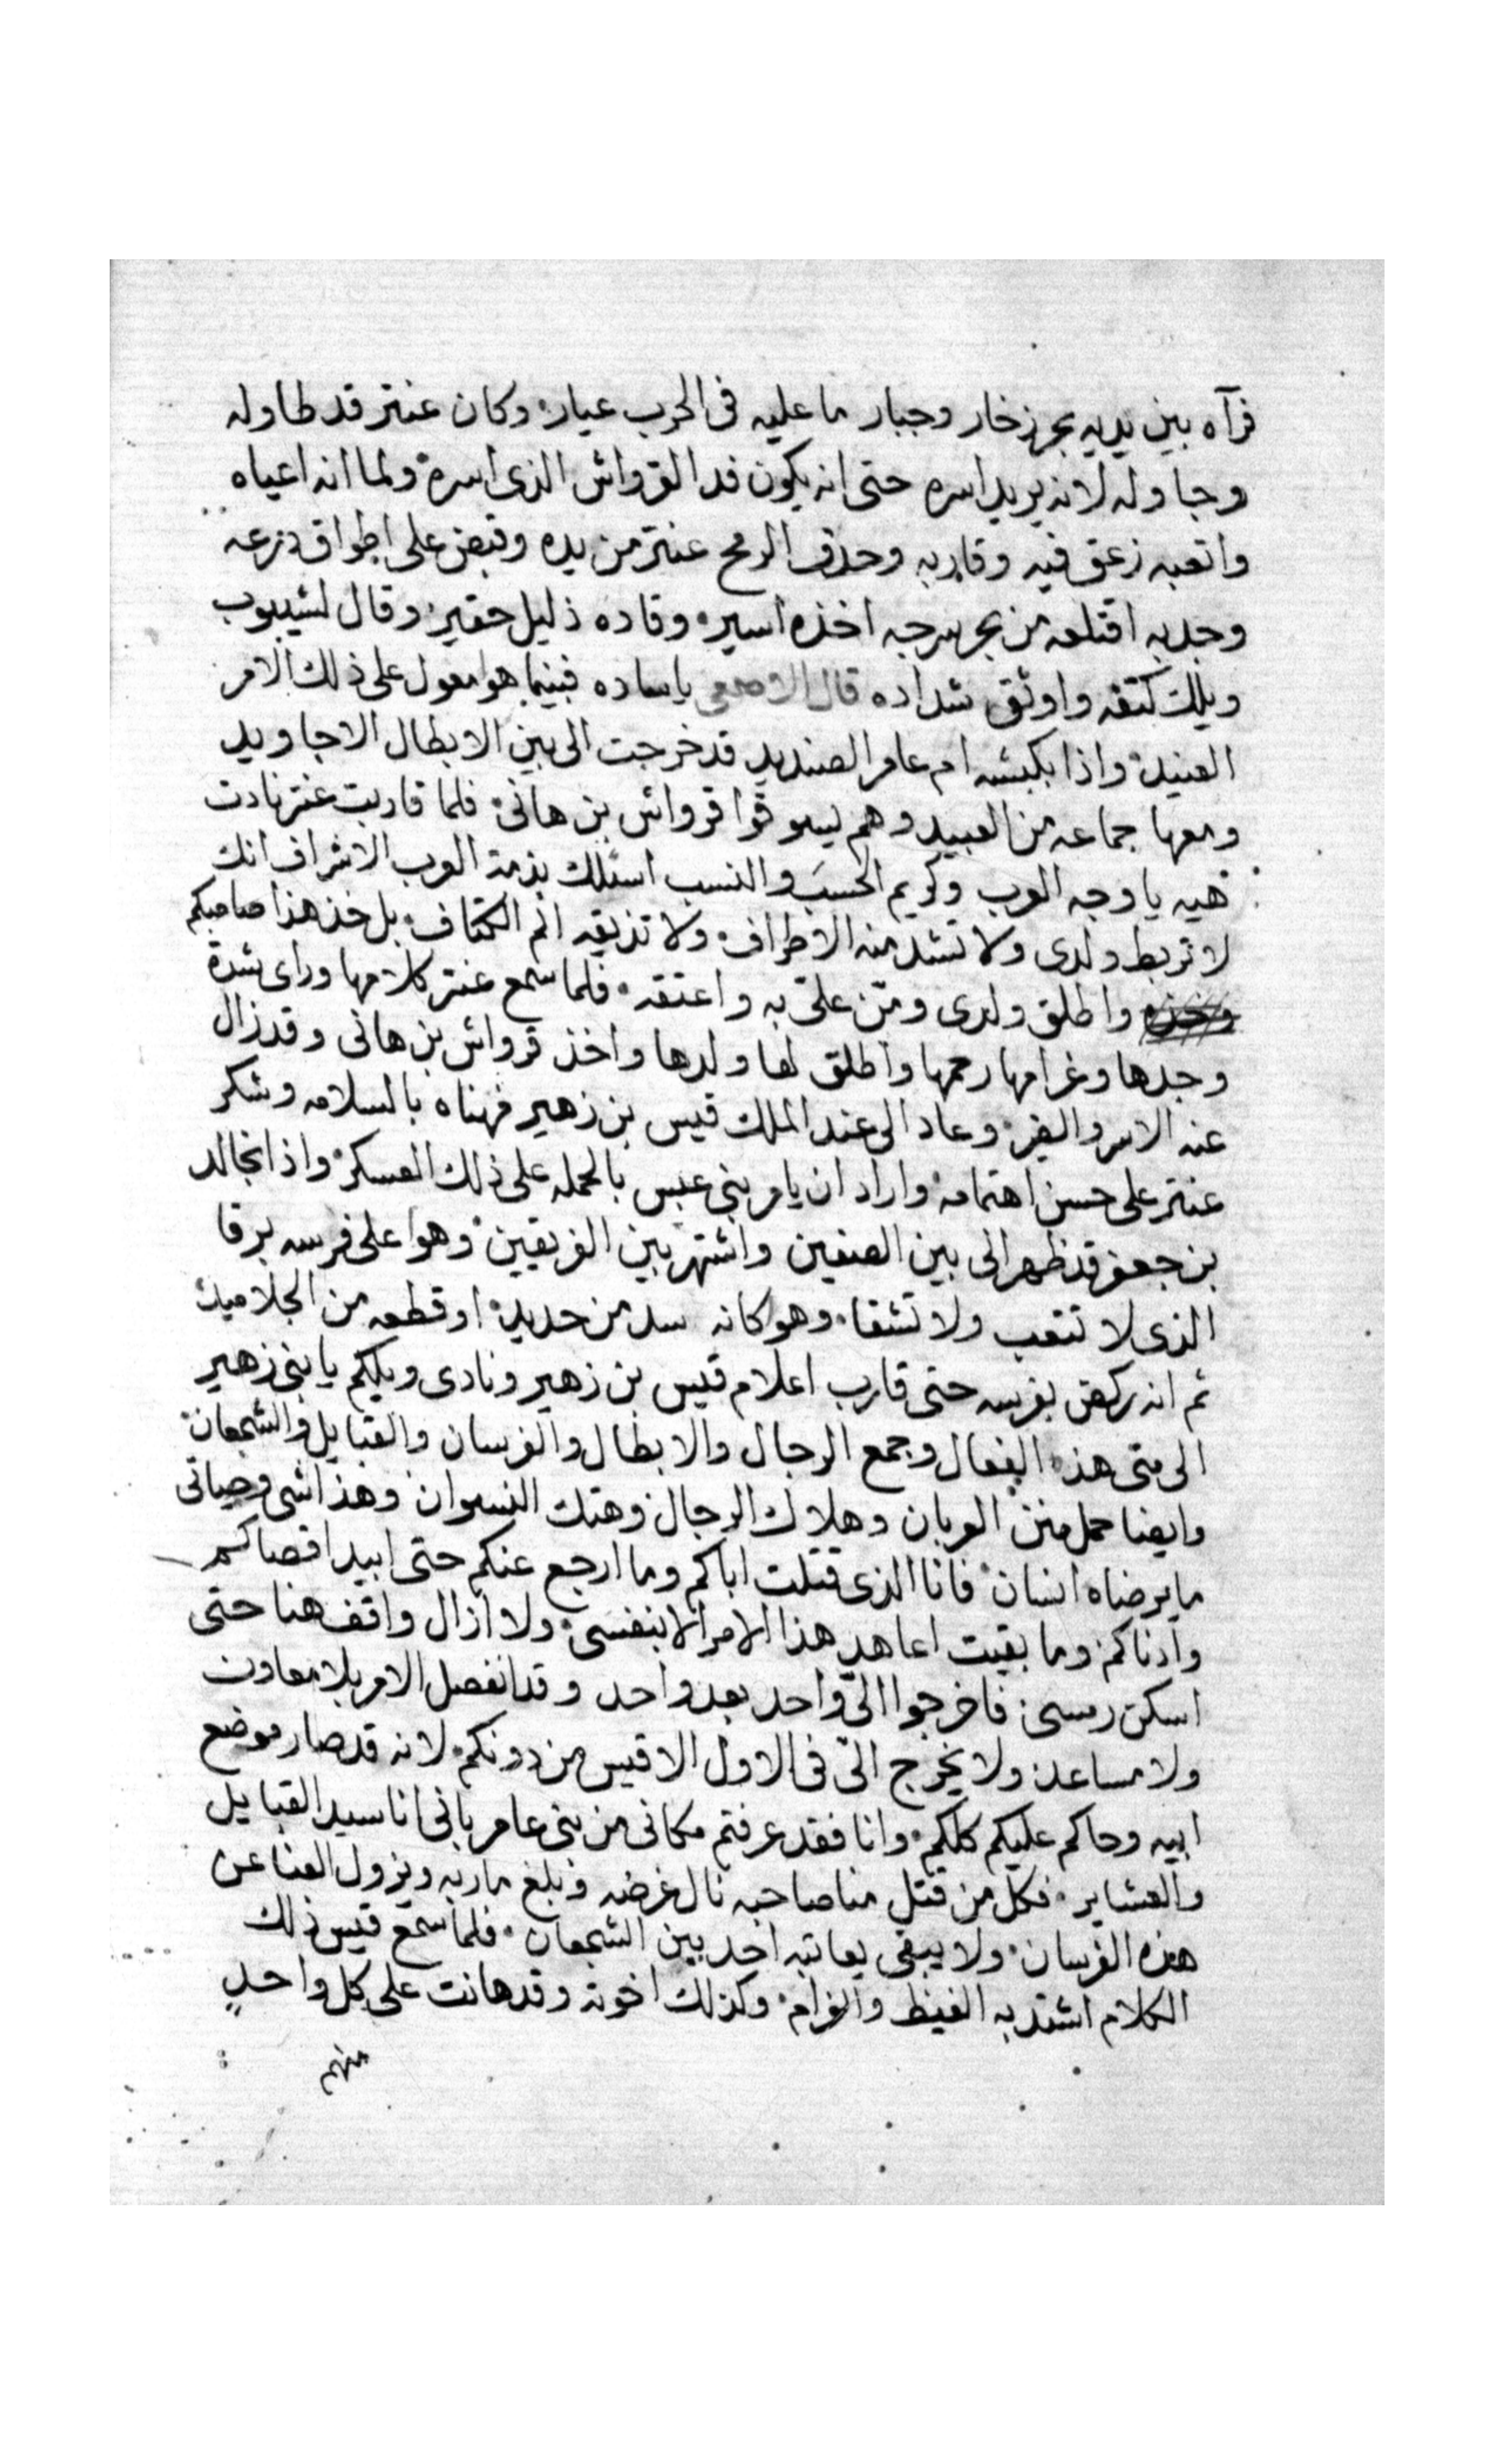 فرآه بين يديه بحر زخار وجبار ما عليه فى الحرب عيار وكان عنتر قد طاوله
وجاوله لانه يريد اسره حتى انه يكون فدا القرواش الذى اسره ولما انه اعياه
واتعبه زعق فيه وقاربه وحذف الرمح عنتر من يده وقبض على اطواق درعه
وجدبه اقتلعه من بحر سرجه اخذه اسير وقاده ذليل حقير وقال لشيبوب
ويلك كتفه واوثق شداده قال الاصمعى ياساده فبينما هو امعول على ذلك الامر
العنيد واذا بكبشه ام عامر الصنديد قد خرجت الى بين الابطال الاجاويد
ومعها جماعه من العبيد وهم يسوقوا قرواش بن هانى فلما قاربت عنتر نادت
هيه يا وجه العرب وكريم الحسب والنسب اسئلك بذمة العرب الاشراف انك
لا تربط ولدى ولا تشد منه الاطراف ولا تذيقه الم الكتاف بل خذ هذا صاحبكم
واطلق ولدى ومنّ علىّ به واعتقه فلما سمع عنتر كلامها وراى شدة
وجدها وغرامها رحمها واطلق لها ولدها واخذ قرواش بن هانى وقد زال
عنه الاسر والضر وعاد الى عند الملك قيس بن زهير فهناه بالسلامه وشكر
عنتر على حسن اهتمامه واراد ان يامر بنى عبس بالحمله على ذلك العسكر واذا بخالد
بن جعفر قد ظهر الى بين الصفين واشتهر بين الفريقين وهوا على فرسه برقا
الذى لا تتعب ولا تشقا وهو كانه سد من حديد او قطعه من الجلاميد
ثم انه ركض بفرسه حتى قارب اعلام قيس بن زهير ونادى ويلكم يا بنى زهير
الى متى هذه الفعال وجمع الرجال والابطال والفرسان والقبايل والشجعان
وايضا حمل منن العربان وهلاك الرجال وهتك النسوان وهذا شى وحياتى
ما يرضاه انسان فانا الذى قتلت اباكم وما ارجع عنكم حتى ابيد اقصاكم
وادناكم وما بقيت اعاهد هذا الامر الا بنفسى ولا ازال واقف هنا حتى
اسكن رمسى فاخرجوا الىّ واحد بعد واحد وقد انفصل الامر بلا معاون
ولا مساعد ولا يخرج الىّ فى الاول الا قيس من دونكم لانه قد صار موضع
ابيه وحاكم عليكم كلكم وانا فقد عرفتم مكانى من بنى عامر بانى انا سيد القبايل
والعشاير فكل من قتل منا صاحبه نال غرضه وبلغ ماربه ويزول العنا عن
هذه الفرسان ولا يبقى يعاتبه احد بين الشجعان فلما سمع قيس ذلك
الكلام اشتد به الغيظ والغرام وكذلك اخوته وقد هانت على كل واحدٍ
منهم